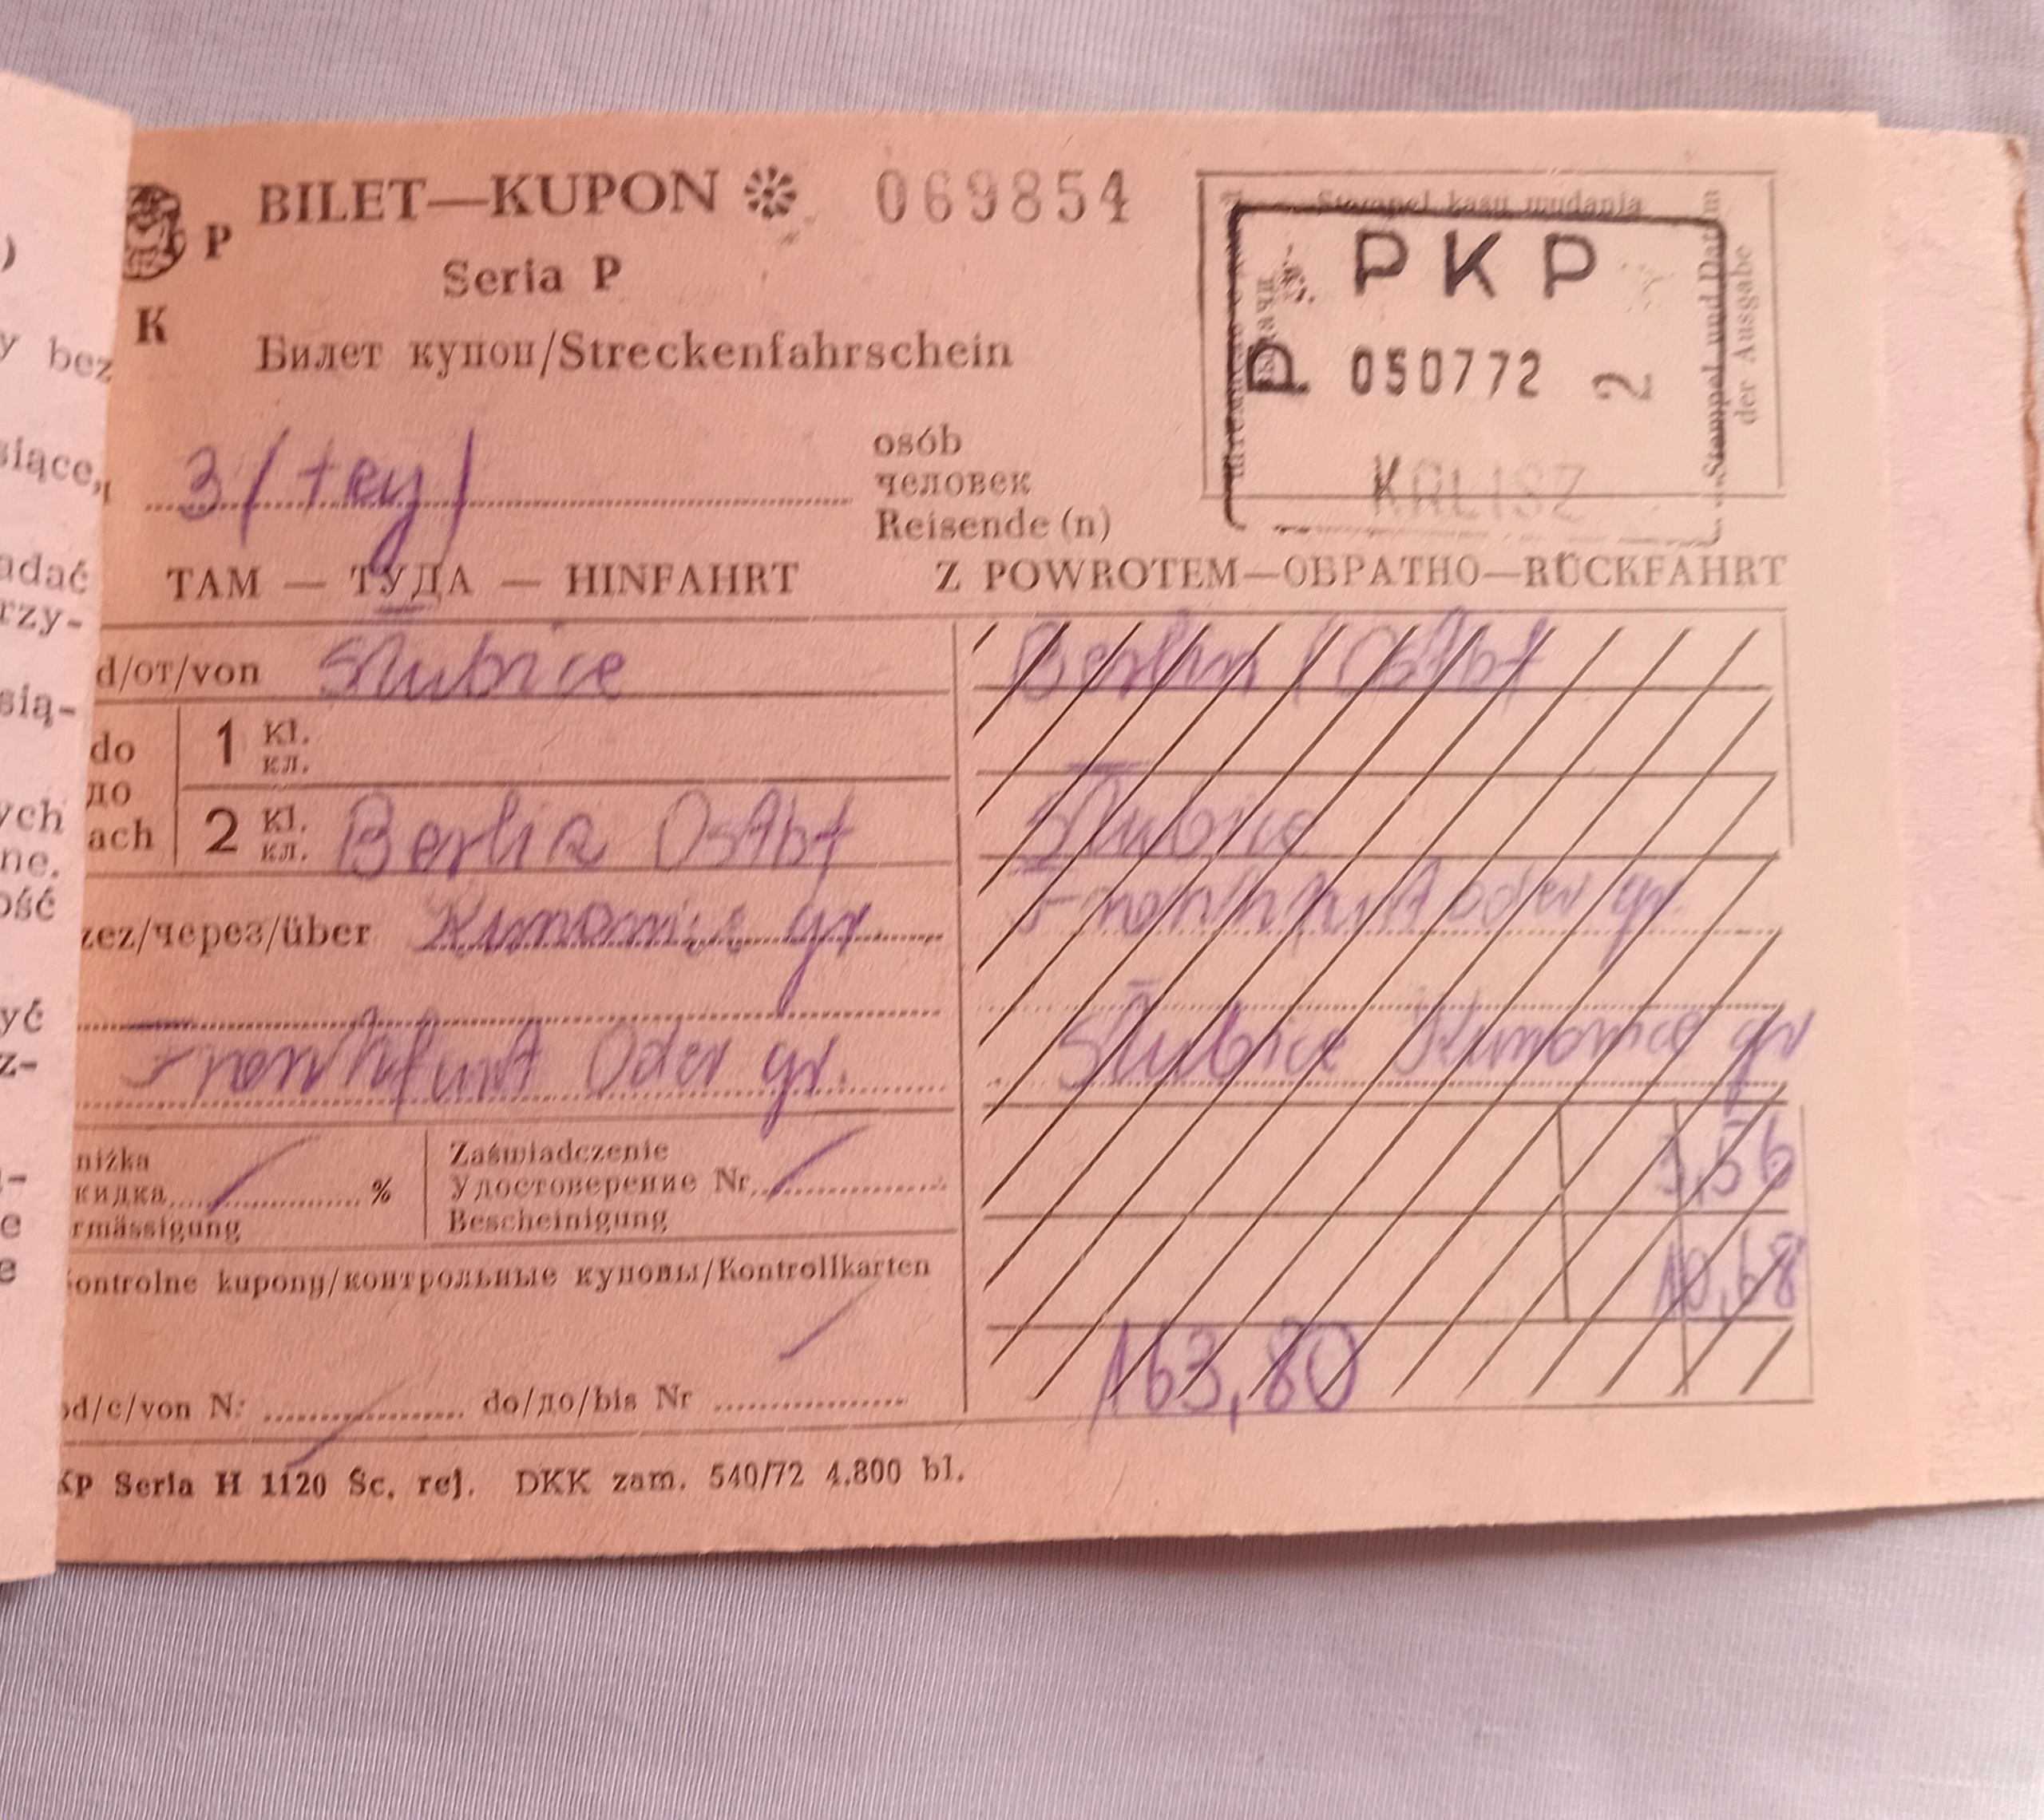 )
y bez
siące,
adać
rzy-
sią-
ych
ne.
ość
yć
z-
e
e
P
K
BILET—KUPON 069854
Seria P
Билет купон/Streckenfahrschein
Stempel kasy wydania
Stempel und Datum
der Ausgabe
выдачи
PKP
P 050772 2
KALISZ
3 (trzy)
osób
человек
Reisende (n)
TAM — ТУДА — HINFAHRT
Z POWROTEM—ОБРАТНО—RÜCKFAHRT
d/от/von Słubice
Berlin (Ostbf
do
до
ach
1 Kl.
кл.
2 Kl.
кл.
Berlin Ostbf
Słubice
zez/через/über Kunowice gr
Frankfurt Oder gr.
Frankfurt oder gr.
Słubice Kunowice gr
niżka
кидка % 
rmässigung
Zaświadczenie
Удостоверение Nr
Bescheinigung
3,56
10,68
163,80
ontrolne kupony/контрольные купоны/Kontrollkarten
od/с/von N: do/до/bis Nr
KP Seria H 1120 Sc. rej. DKK zam. 540/72 4.800 bl.